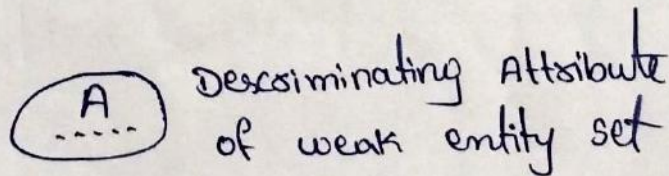 A
Descriminating Attribute
of weak entity set